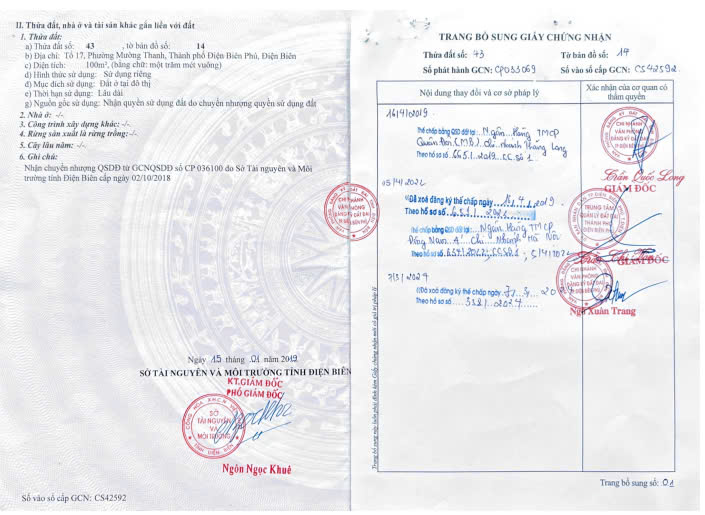 II. Thửa đất, nhà ở và tài sản khác gắn liền với đất
1. Thửa đất:
a) Thửa đất số: 43 , tờ bản đồ số: 14
b) Địa chỉ: Tổ 17, Phường Mường Thanh, Thành phố Điện Biên Phủ, Điện Biên
c) Diện tích: 100m², (bằng chữ: một trăm mét vuông)
d) Hình thức sử dụng: Sử dụng riêng
đ) Mục đích sử dụng: Đất ở tại đô thị
e) Thời hạn sử dụng: Lâu dài
g) Nguồn gốc sử dụng: Nhận quyền sử dụng đất do chuyển nhượng quyền sử dụng đất
2. Nhà ở: -/-
3. Công trình xây dựng khác: -/-
4. Rừng sản xuất là rừng trồng: -/-
5. Cây lâu năm: -/-
6. Ghi chú:
Nhận chuyển nhượng QSDĐ từ GCNQSDĐ số CP 036100 do Sở Tài nguyên và Môi
trường tỉnh Điện Biên cấp ngày 02/10/2018
Ngày 15 tháng 01 năm 2019
SỞ TÀI NGUYÊN VÀ MÔI TRƯỜNG TỈNH ĐIỆN BIÊN
KT.GIÁM ĐỐC
PHÓ GIÁM ĐỐC
SỞ
TÀI NGUYÊN
VÀ
MÔI TRƯỜNG
Ngôn Ngọc Khuê
Số vào sổ cấp GCN: CS42592
CHI NHÁNH
VĂN PHÒNG
ĐĂNG KÝ ĐẤT ĐAI
TP. ĐIỆN BIÊN PHỦ
TRANG BỔ SUNG GIẤY CHỨNG NHẬN
Thửa đất số: 43 Tờ bản đồ số: 14
Số phát hành GCN: CP033069 Số vào sổ cấp GCN: CS42592
Nội dung thay đổi và cơ sở pháp lý
Xác nhận của cơ quan có
thẩm quyền
16/4/2019
Thế chấp bằng QSD đất tại Ngân hàng TMCP
Quân Đội (MB) Chi nhánh Thăng Long
Theo hồ sơ số
CHI NHÁNH
VĂN PHÒNG
ĐĂNG KÝ ĐẤT ĐAI
TP ĐIỆN BIÊN PHỦ
Trần Quốc Long
GIÁM ĐỐC
05/4/2022
Đã xoá đăng ký thế chấp ngày 16.4.2019
Theo hồ sơ số
Thế chấp bằng QSD đất tại Ngân hàng TMCP
Đông Nam Á Chi Nhánh Hà Nội
TRUNG TÂM
QUẢN LÝ ĐẤT ĐAI
THÀNH PHỐ
ĐIỆN BIÊN PHỦ
GIÁM ĐỐC
7/3/2024
Đã xoá đăng ký thế chấp ngày
Theo hồ sơ số 338/2024
CHI NHÁNH
VĂN PHÒNG
ĐĂNG KÝ ĐẤT ĐAI
TP. ĐIỆN BIÊN PHỦ
Ngô Xuân Trang
Trang bổ sung số: 01